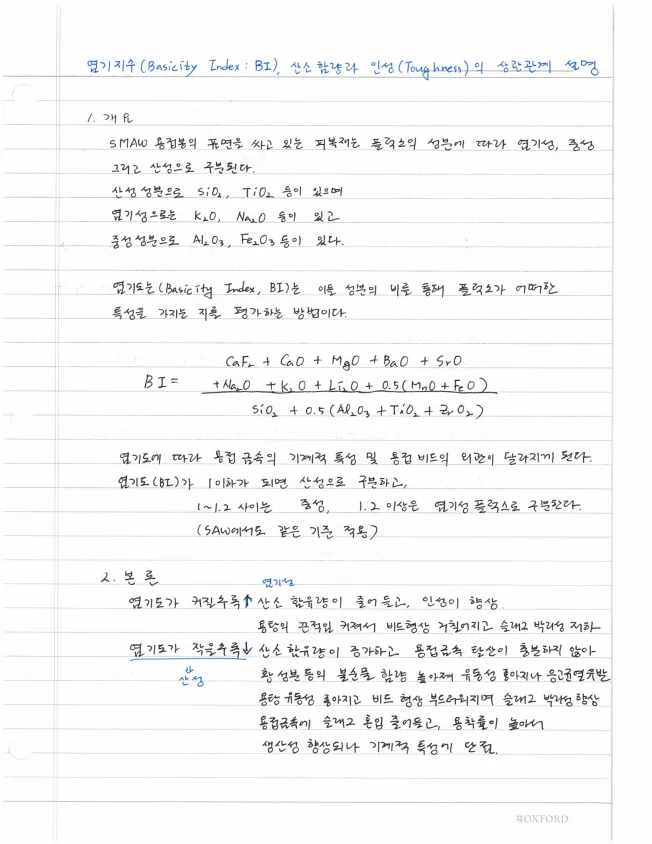 염기지수(Basicity Index : BI), 산소 함량과 인성(Toughness)의 상관관계 설명
1. 개요
SMAW 용접봉의 표면을 싸고 있는 피복제는 플럭스의 성분에 따라 염기성, 중성
그리고 산성으로 구분된다.
산성 성분으로 SiO₂, TiO₂ 등이 있으며
염기성으로는 K₂O, Na₂O 등이 있고
중성성분으로 Al₂O₃, Fe₂O₃ 등이 있다.
염기도는(Basicity Index, BI)는 이들 성분의 비를 통해 플럭스가 어떠한
특성을 가지는 지를 평가하는 방법이다.
CaF₂ + CaO + MgO + BaO + SrO
BI = +Na₂O + K₂O + Li₂O + 0.5(MnO + FeO)
SiO₂ + 0.5(Al₂O₃ + TiO₂ + ZrO₂)
염기도에 따라 용접 금속의 기계적 특성 및 용접 비드의 외관이 달라지게 된다.
염기도(BI)가 1이하가 되면 산성으로 구분하고,
1~1.2 사이는 중성, 1.2 이상은 염기성 플럭스로 구분한다.
(SAW에서도 같은 기준 적용)
2. 본론
염기성
염기도가 커질수록↑ 산소 함유량이 줄어들고, 인성이 향상.
용탕의 끈적임 커져서 비드형상 거칠어지고 슬래그 박리성 저하
염기도가 작을수록↓ 산소 함유량이 증가하고 용접금속 탈산이 충분하지 않아
산성 황 성분 등의 불순물 함량 높아져 유동성 좋아지나 응고균열 유발
용탕 유동성 좋아지고 비드 형상 부드러워지며 슬래그 박리성 향상
용접금속에 슬래그 혼입 줄어들고, 용착률이 높아서
생산성 향상되나 기계적 특성에 단점.
OXFORD